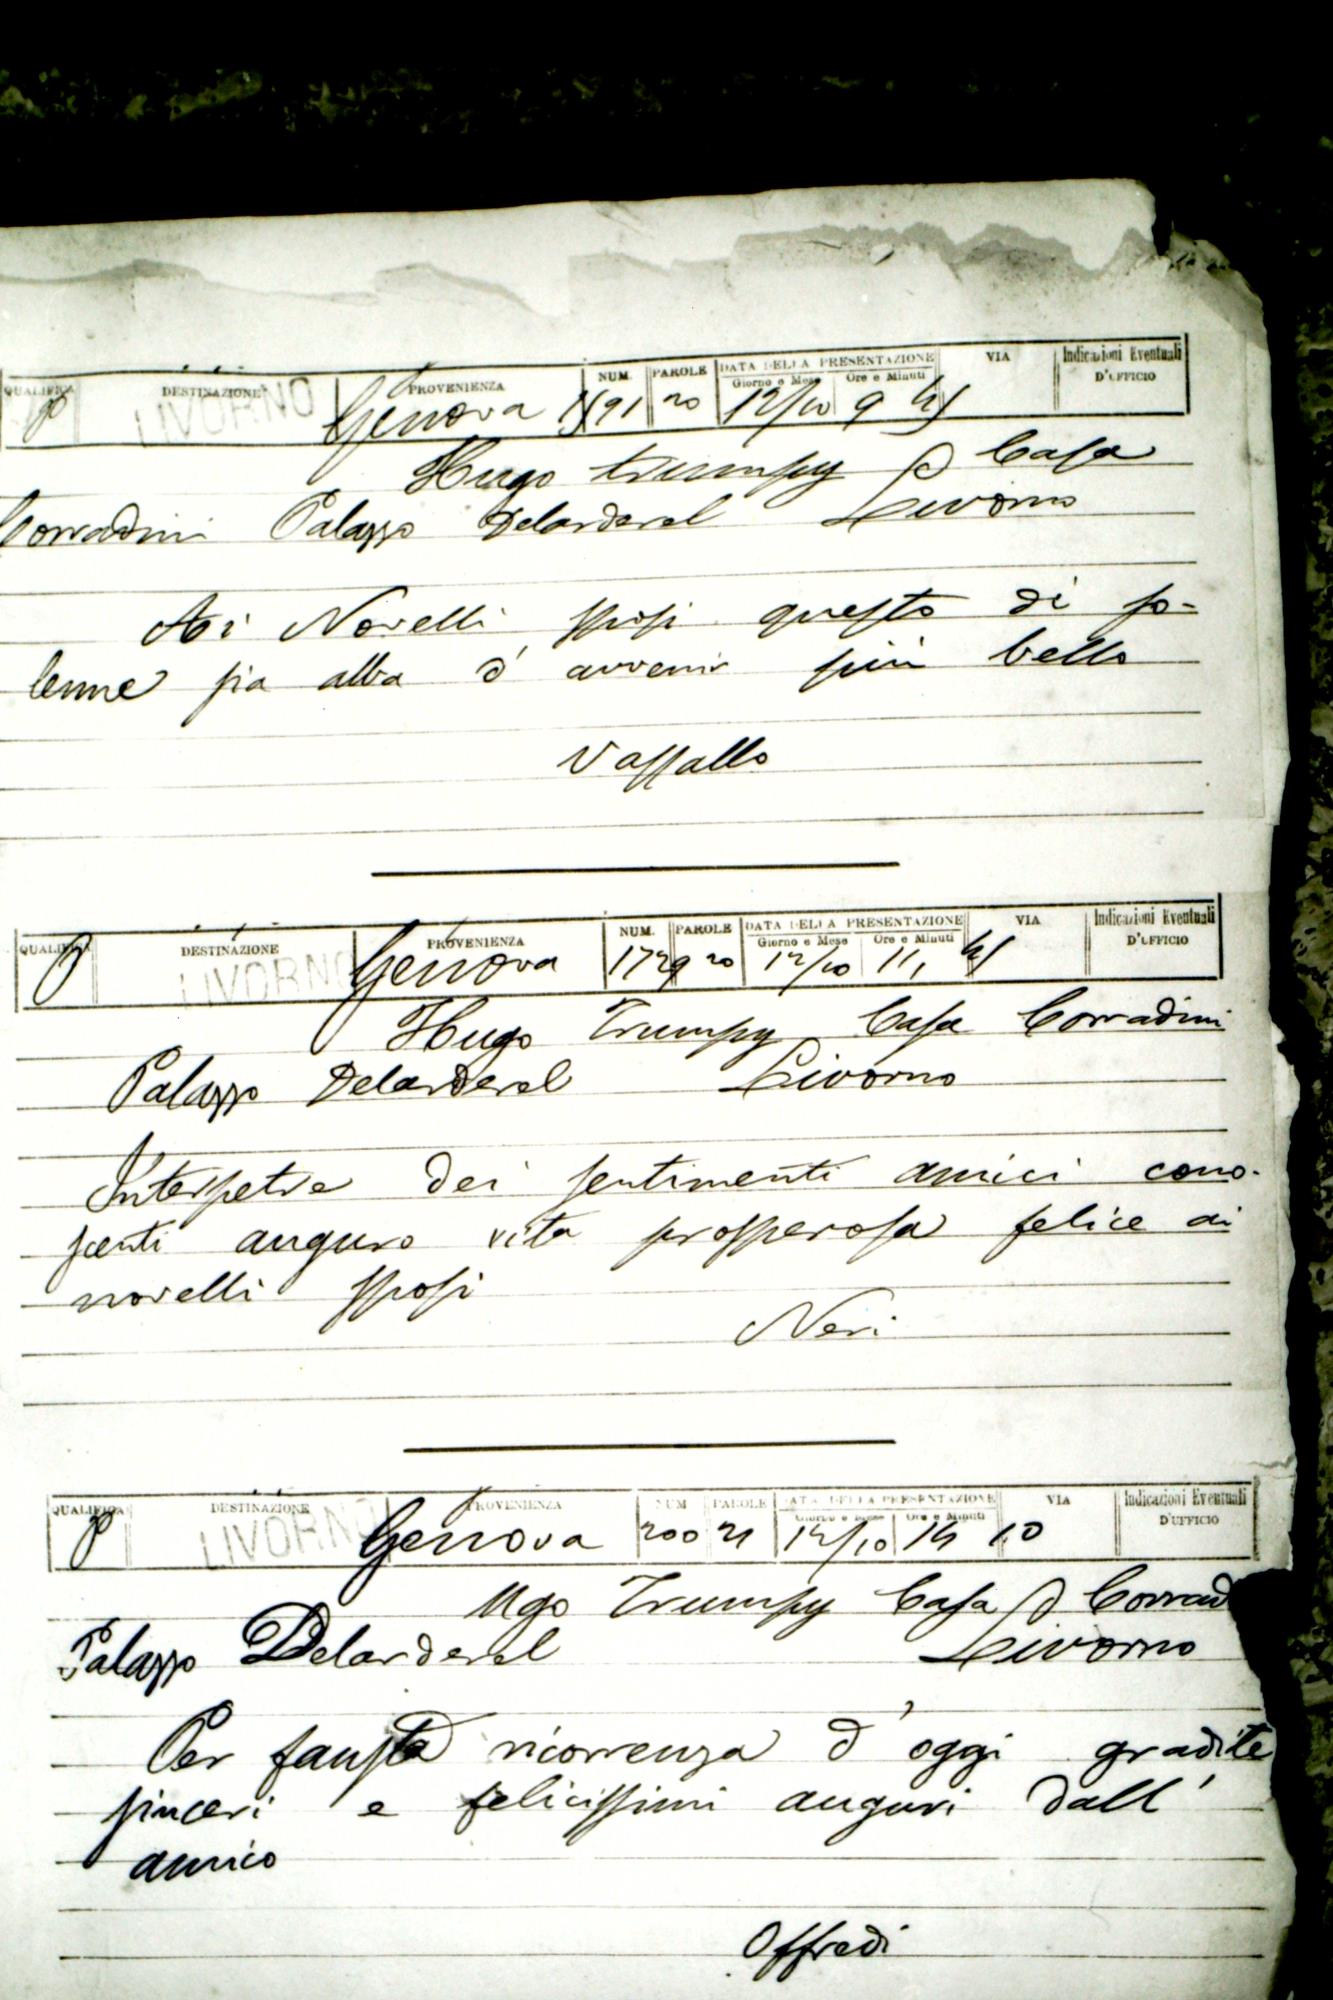 QUALIFICA DESTINAZIONE PROVENIENZA NUM. PAROLE DATA DELLA PRESENTAZIONE VIA Indicazioni Eventuali
Giorno e Mese Ore e Minuti D'UFFICIO
P LIVORNO Genova 20 12/10 9 45
Hugo Trumpy Casa
Corradini Palazzo Delarderel Livorno
Ai Novelli sposi questo di so-
lenne sia alba d'avvenir più bello
Vassallo
QUALIFICA DESTINAZIONE PROVENIENZA NUM. PAROLE DATA DELLA PRESENTAZIONE VIA Indicazioni Eventuali
Giorno e Mese Ore e Minuti D'UFFICIO
P LIVORNO Genova 1729 20 12/10 11, 45
Hugo Trumpy Casa Corradini
Palazzo Delarderel Livorno
Interpetre dei sentimenti amici cono-
scenti auguro vita prosperosa felice ai
novelli sposi
Neri
QUALIFICA DESTINAZIONE PROVENIENZA NUM PAROLE DATA DELLA PRESENTAZIONE VIA Indicazioni Eventuali
Giorno e Mese Ore e Minuti D'UFFICIO
P LIVORNO Genova 200 21 12/10 14 10
Ugo Trumpy Casa Corrad
Palazzo Delarderel Livorno
Per fausta ricorrenza d'oggi gradite
sinceri e felicissimi auguri dall'
amico
Offredi